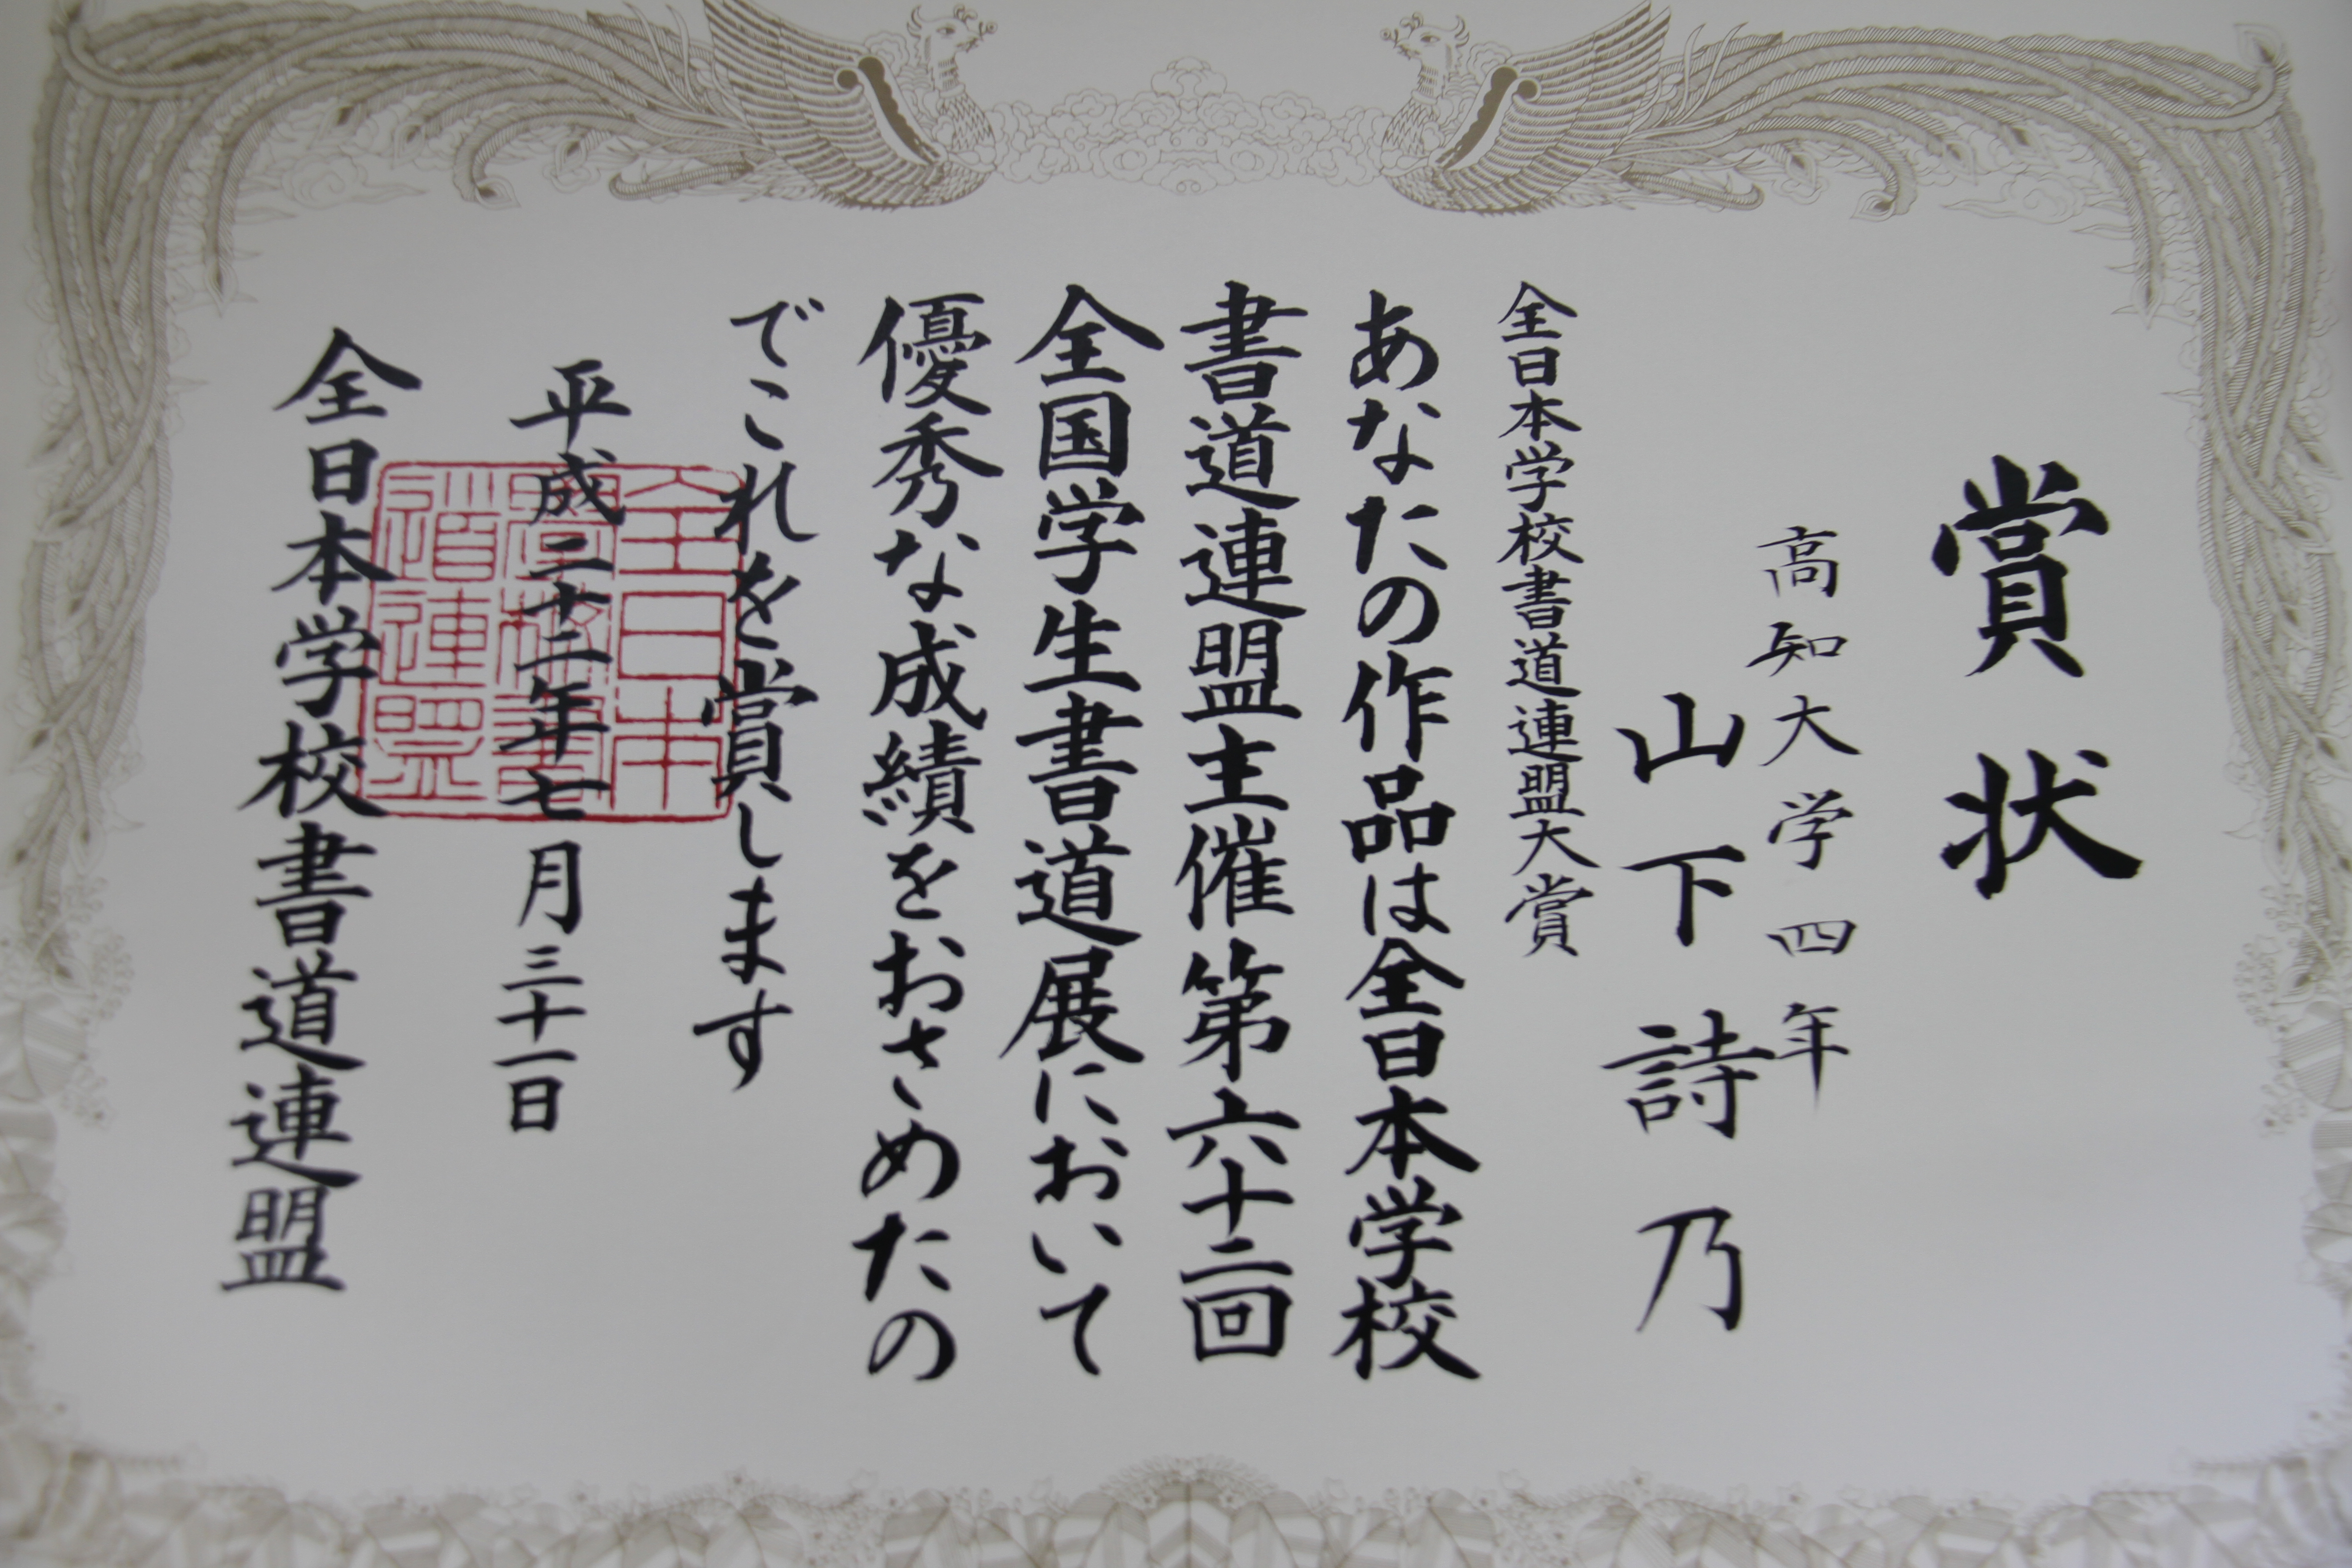 賞状
高知大学四年
山下詩乃
全日本学校書道連盟大賞
あなたの作品は全日本学校
書道連盟主催第六十二回
全国学生書道展において
優秀な成績をおさめたの
でこれを賞します
平成二十二年七月三十一日
全日本学校書道連盟
全日本
学校書
道連盟